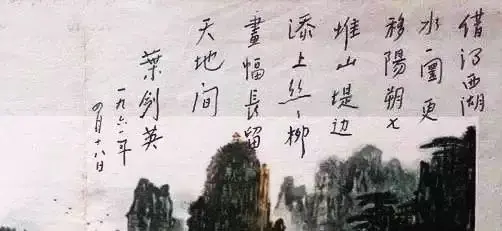 借得西湖
水一圜更
移陽朔七
堆山堤边
添上丝〻柳
畫幅長留
天地间
葉剑英
一九六一年
四月十八日